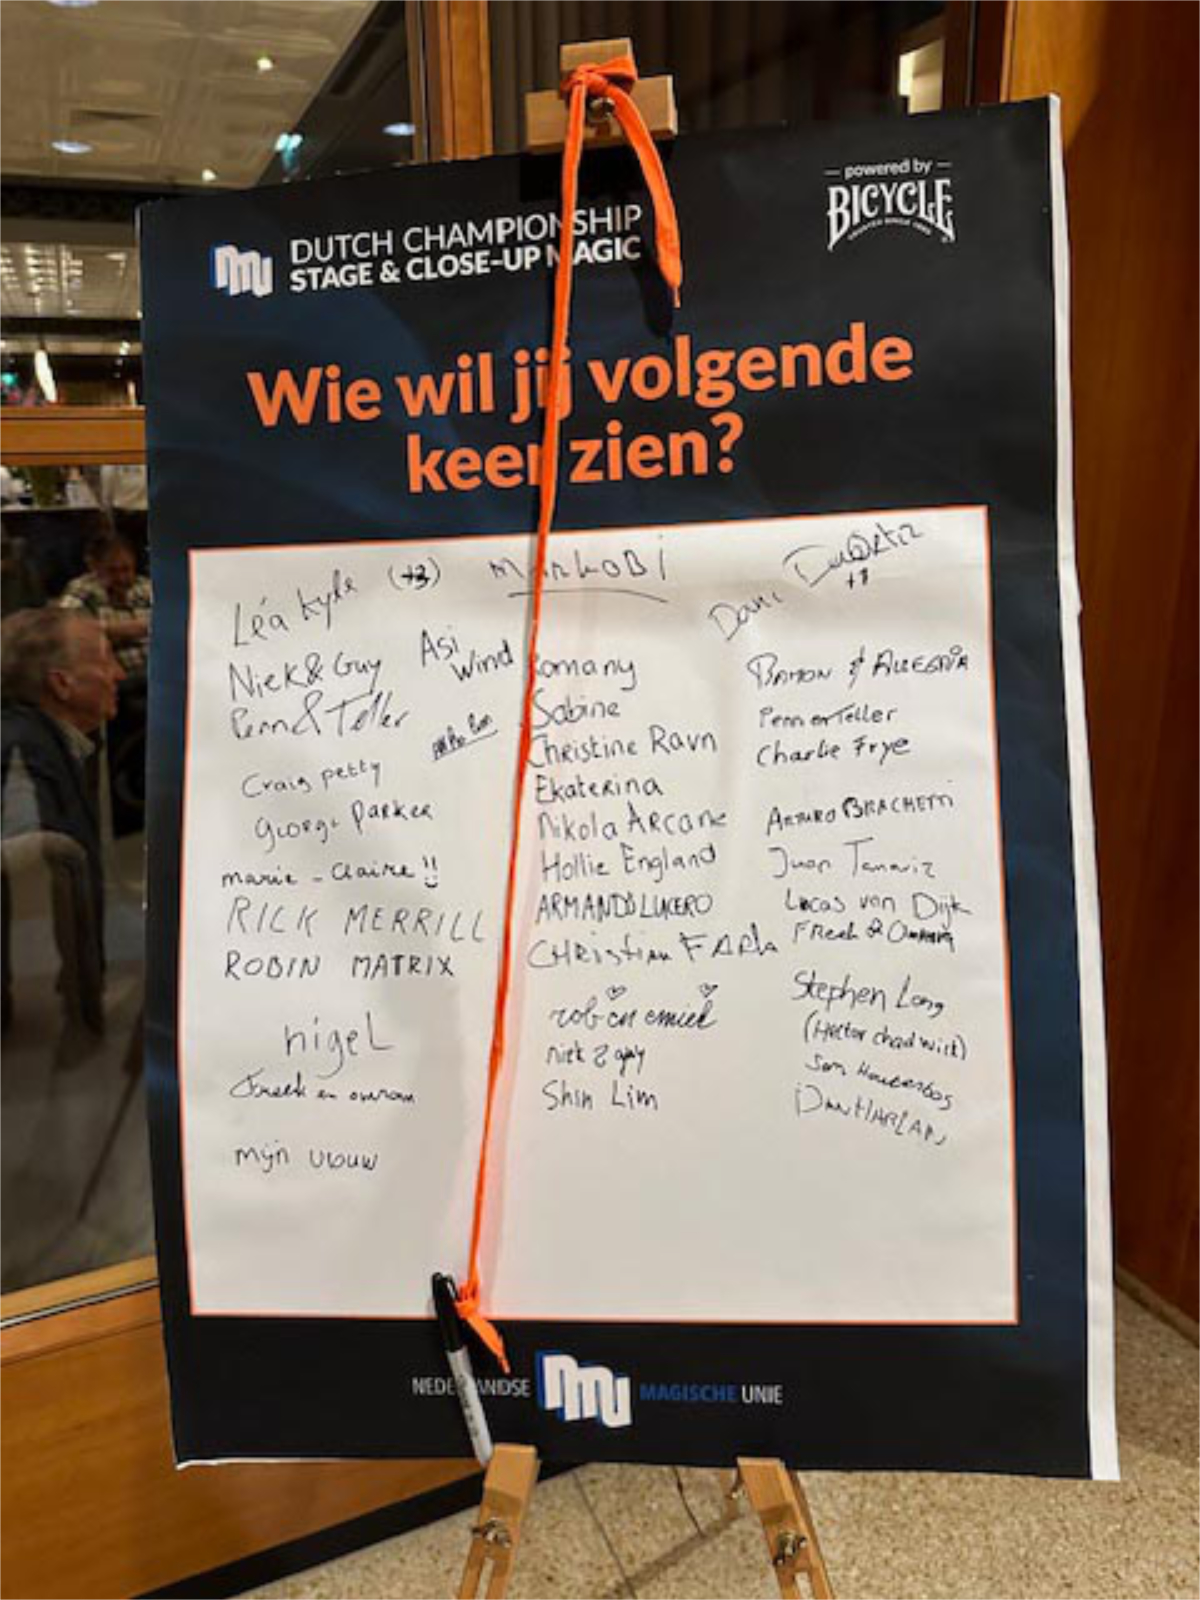 powered by
BICYCLE
DUTCH CHAMPIONSHIP
STAGE & CLOSE-UP MAGIC
Wie wil jij volgende
keer zien?
Léa Kyle (+3)
Niek & Guy
Penn & Teller
Craig petty
George Parker
marie - claire !!
RICK MERRILL
ROBIN MATRIX
nigel
Freek en
mijn vrouw
Markobi
Asi
Wind
Romany
Sabine
Christine Ravn
Ekaterina
Nikola ARCANE
Hollie England
ARMANDO LUCERO
CHRistian FARLA
rob en emiel
niek & guy
Shin Lim
Dani DaOrtiz
+1
RAMON & ALLEGRIA
Penn en Teller
Charlie Frye
ARTURO BRACHETTI
Juan Tamariz
Lucas van Dijk
Freek &
Stephen Long
(Hector chadwick)
Dan HARLAN
NEDERLANDSE MAGISCHE UNIE